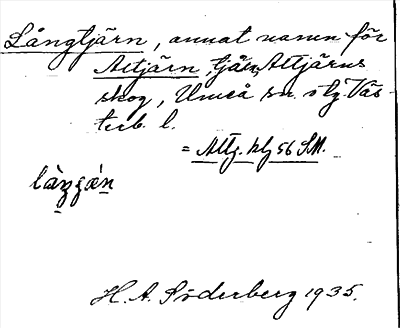 Långtjärn, annat namn för
Altjärn, tjärn, Altjärns
skog, Umeå sn. o lg. Väs-
terb. l.
= Alltj. blg 56 SM.
làŋgǽn
H. A. Söderberg 1935.